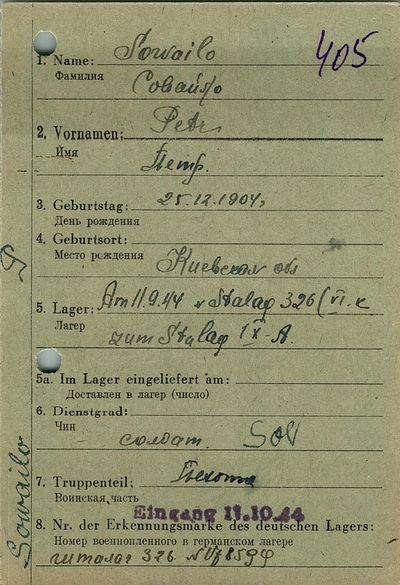 405
1. Name: Sowailo
Фамилия
Совайло
2. Vornamen: Petr
Имя
Петр.
3. Geburtstag: 25.12.1904,
День рождения
4. Geburtsort:
Место рождения Киевская обл
5. Lager: Am 11.9.44 v Stalag 326 (VI.K
Лагерь zum Stalag IX-A.
5a. Im Lager eingeliefert am:
Доставлен в лагерь (число)
6. Dienstgrad:
Чин солдат Sol
7. Truppenteil: Пехота
Воинская часть
Eingang 11.10.44
8. Nr. der Erkennungsmarke des deutschen Lagers:
Номер военнопленного в германском лагере
шталаг 326
Sowailo P